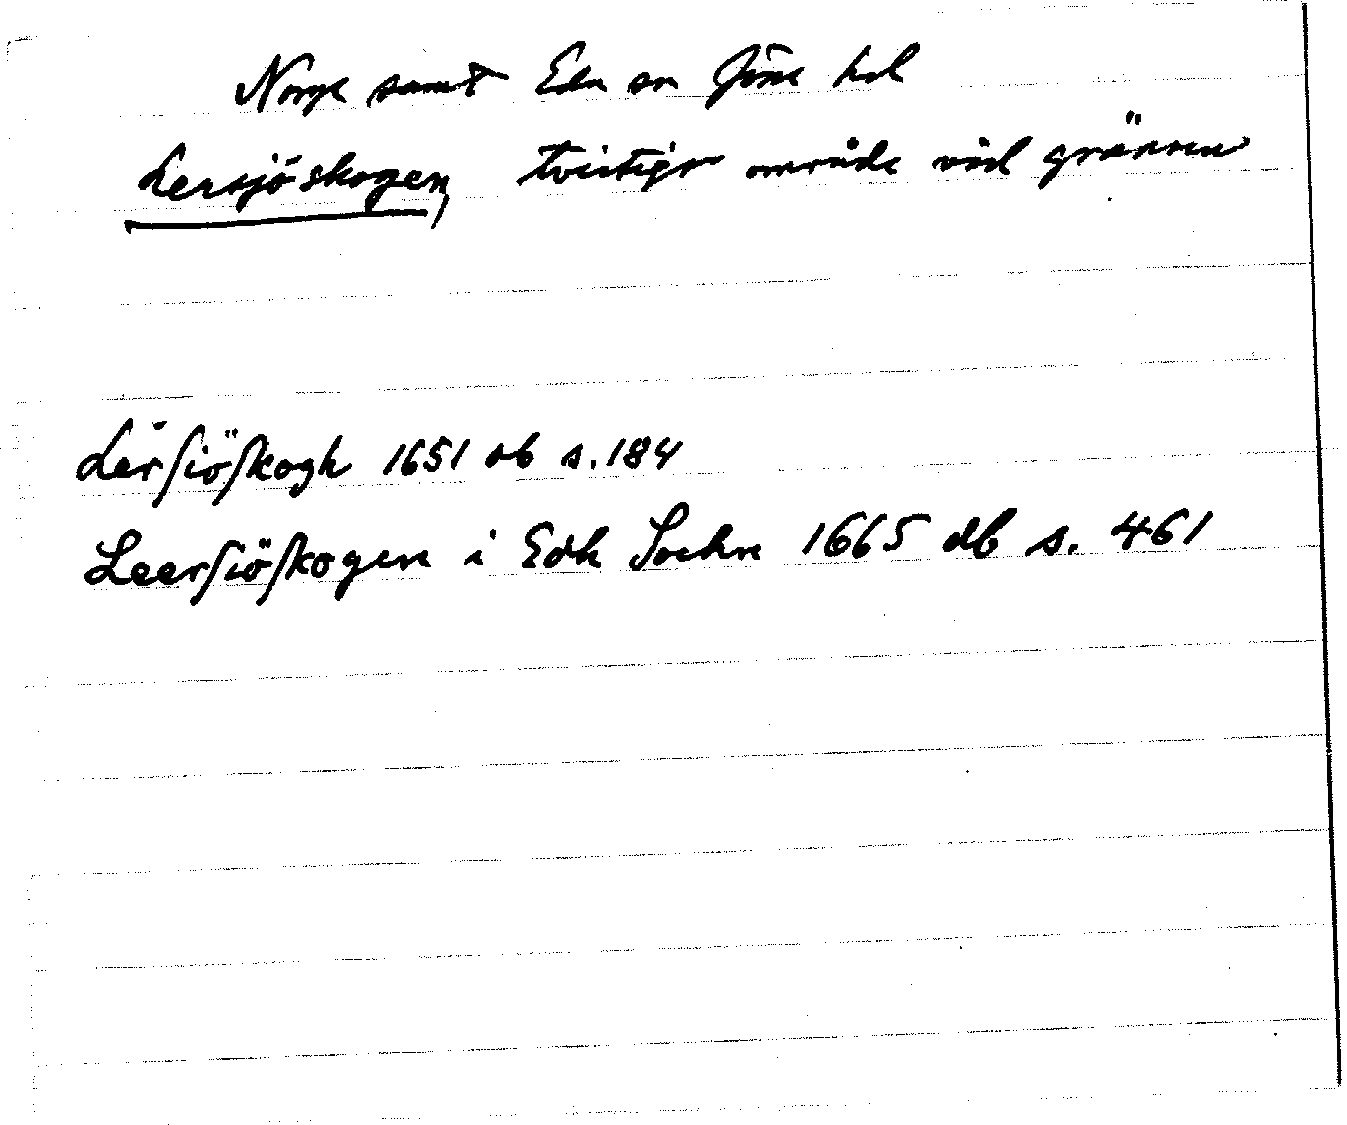 Norge samt Eda sn Jösse hd
Lersjöskogen, tvistigt område vid gränsen
Lersiöskogh 1651 ob s. 184
Leersiöskogen i Edh Sochn 1665 db s. 461